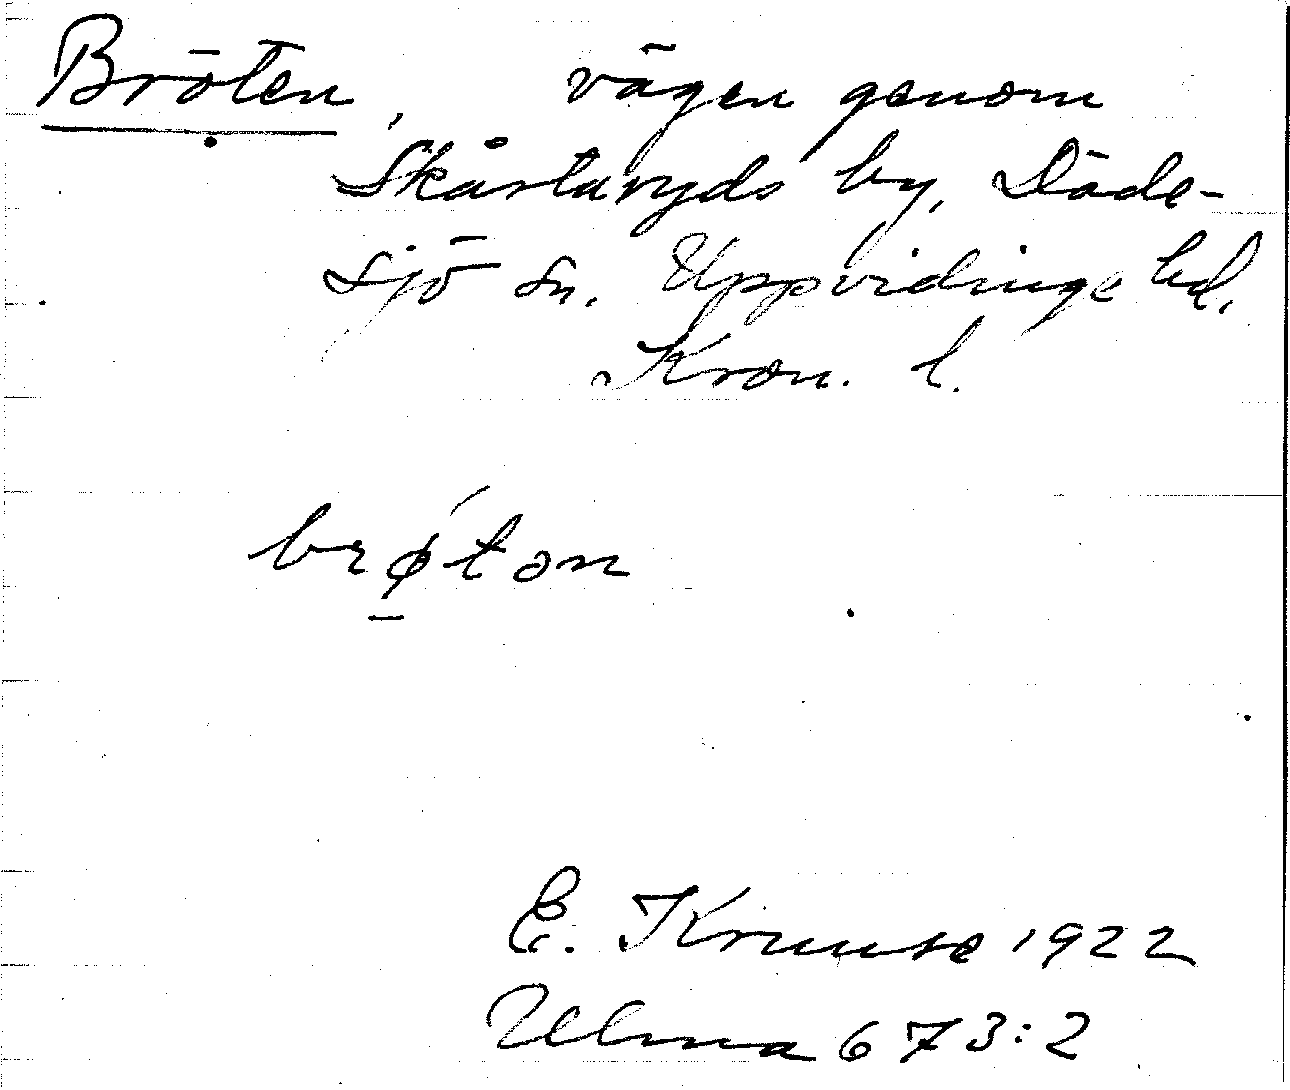 Bröten, vägen genom
Skårtaryds by, Däde-
sjö sn. Uppvidinge hd.
Kron. l.
brǿ̱tən
E. Kruuse 1922
Ulma 673:2